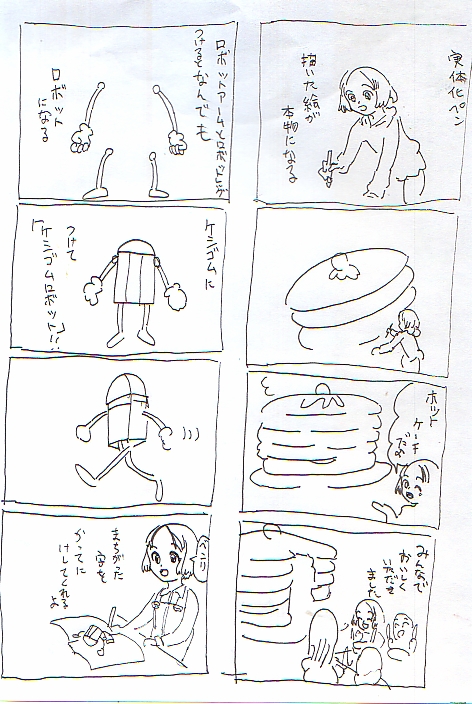 実体化ペン
描いた絵が
本物になる
ホット
ケーキ
だよ
みんなで
おいしく
いただき
ました
ロボットアームとロボットレッグ
つけるとなんでも
ロボット
になる
ケシゴムに
つけて
「ケシゴムロボット」!!
ベンリ
まちがった
字を
かってに
けしてくれる
よ